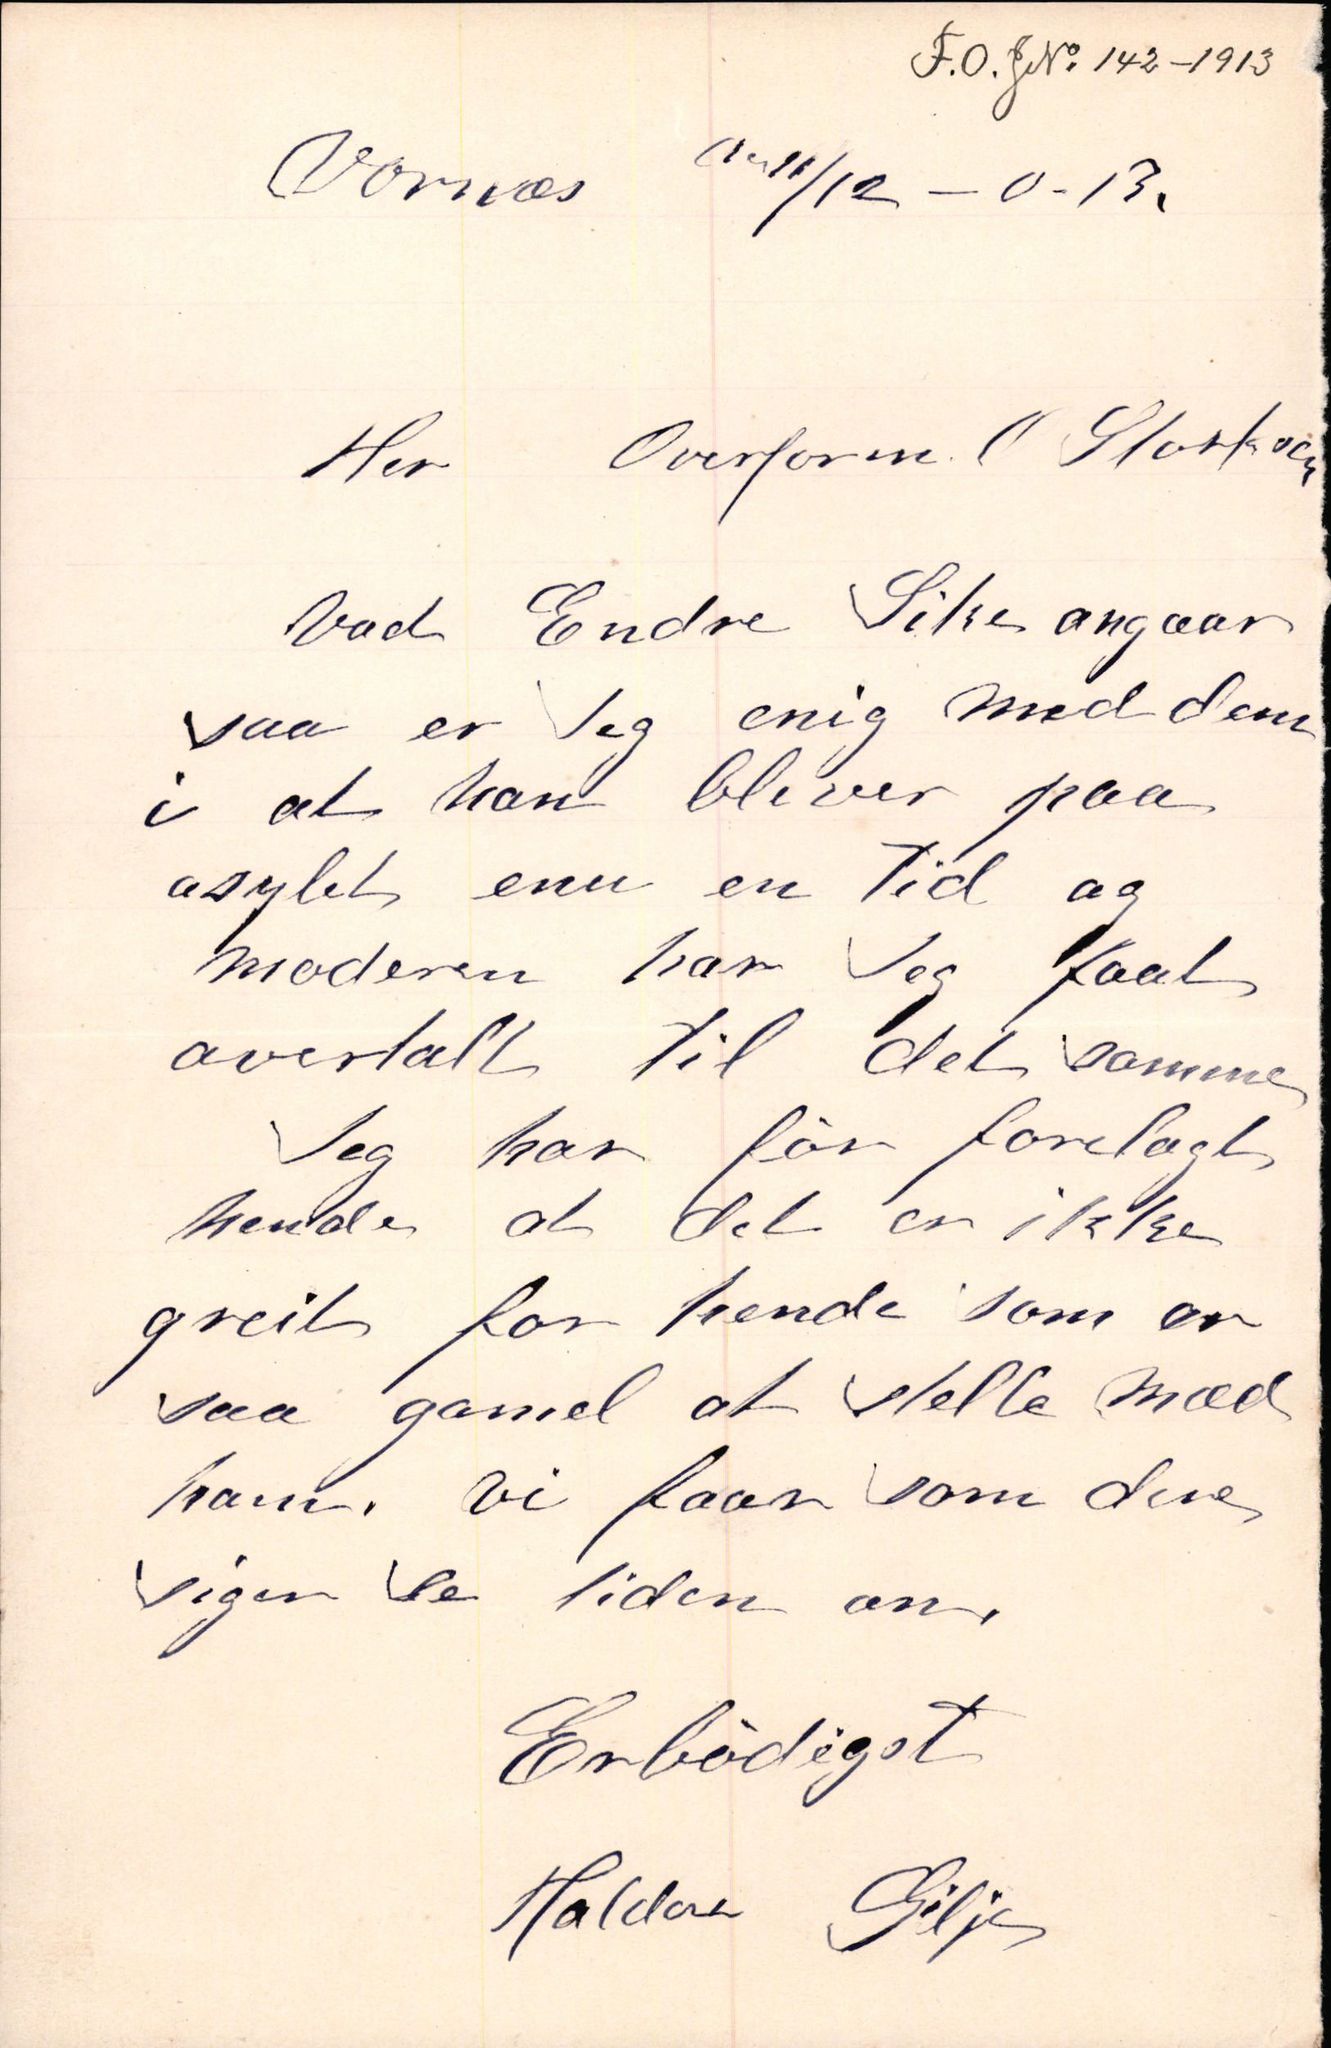 F.O.J.No. 142-1913
Vornes 11/12 - 0 - 13.
Her Overform.
Vad Endre Sike angaar
saa er Jeg enig med dem
i at han bliver paa
asylet enu en Tid og
moderen har Jeg faat
overtalt til det samme
Jeg har för forelagt
hende at det er ikke
greit for hende som er
saa gamel at stelle med
ham. vi faar som dere
siger se tiden an.
Erbödigst
Haldor Gilje